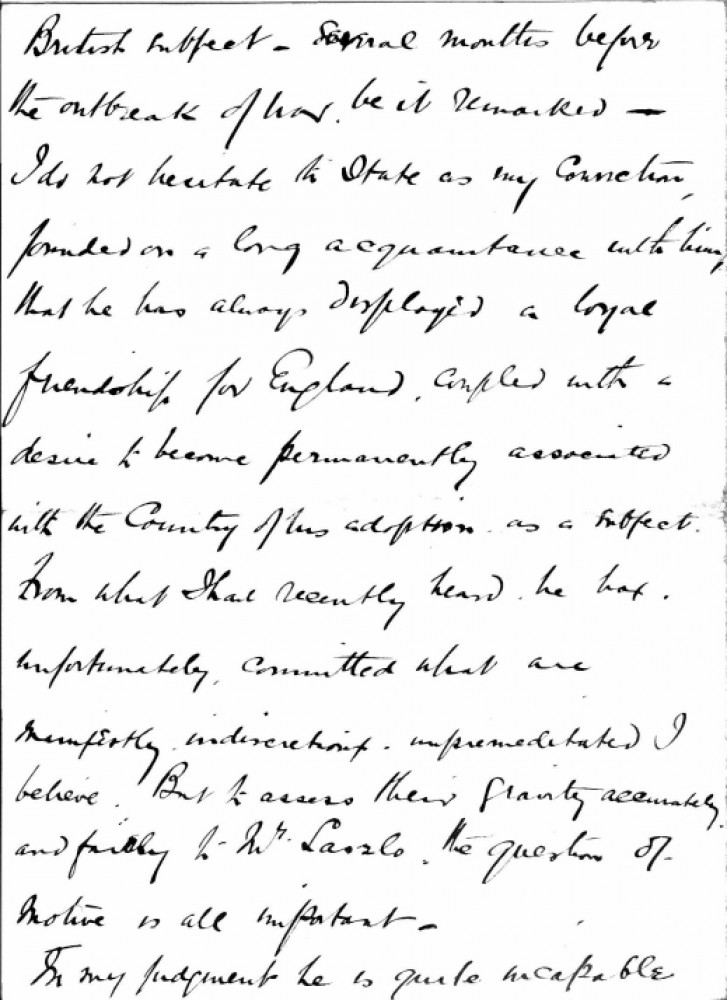 British subject – several months before
the outbreak of war, be it remarked –
I do not hesitate to State as my Conviction,
founded on a long acquaintance with him,
that he has always displayed a loyal
friendship for England, coupled with a
desire to become permanently associated
with the Country of his adoption as a subject.
From what I have recently heard, he has,
unfortunately, committed what are
manifestly indiscretions, unpremeditated I
believe. But to assess their gravity accurately,
and fairly to Mr. Laszlo, the question of
Motive is all important –
In my judgment he is quite incapable